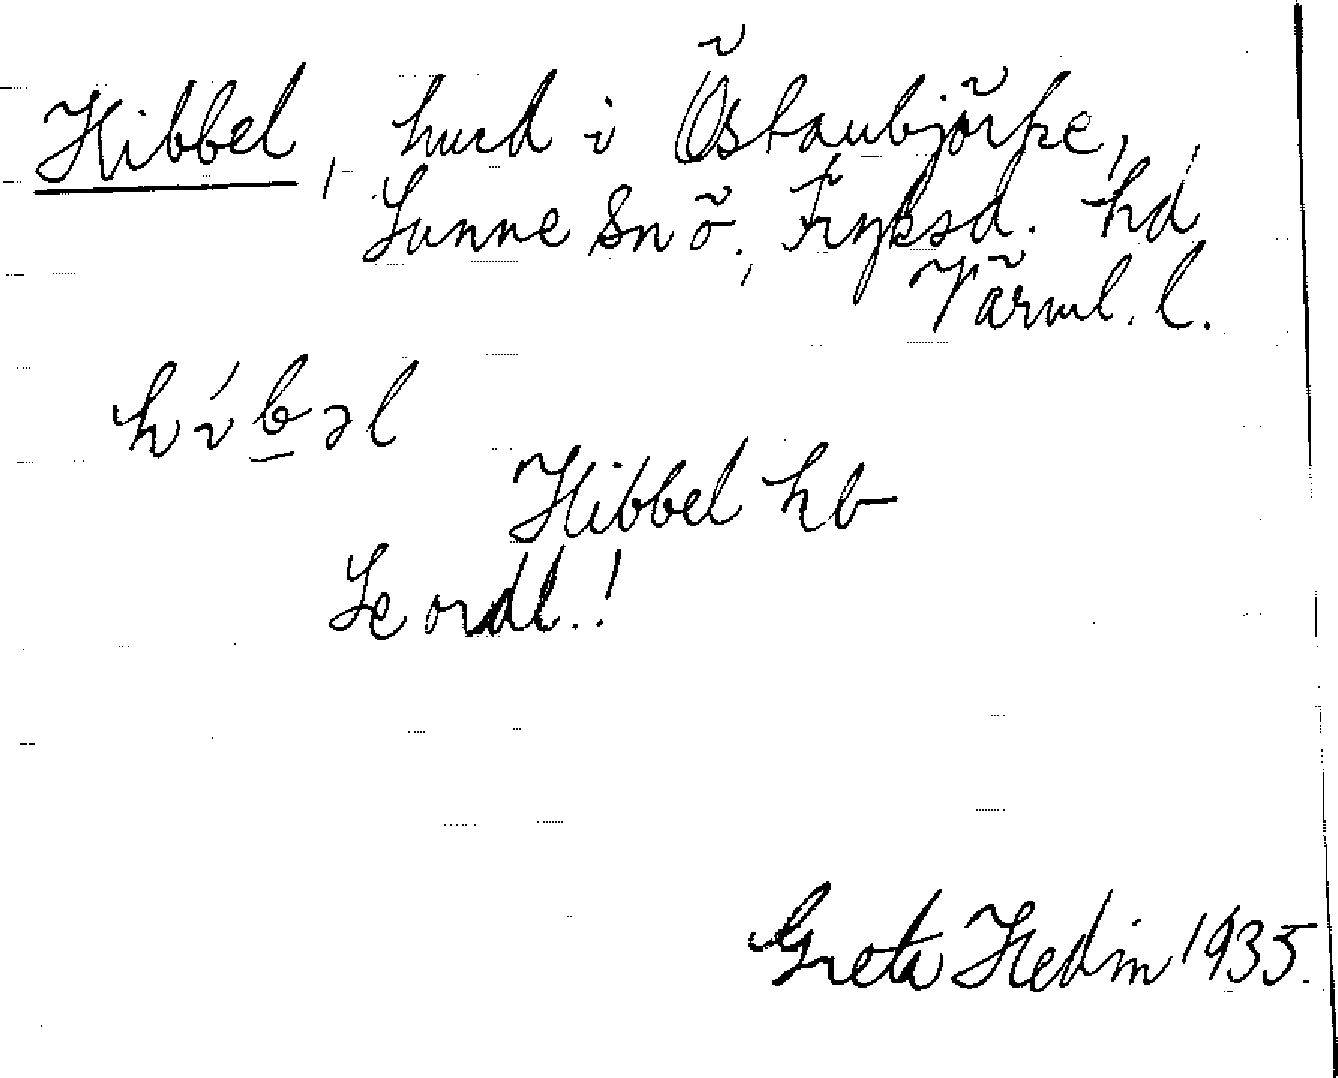 Hibbel, husd i Östanbjörke,
Sunne Snö., Fryksd. hd,
Värml. l.
híbəl
Hibbel hb
Se ordl.!
Greta Hedin 1935.